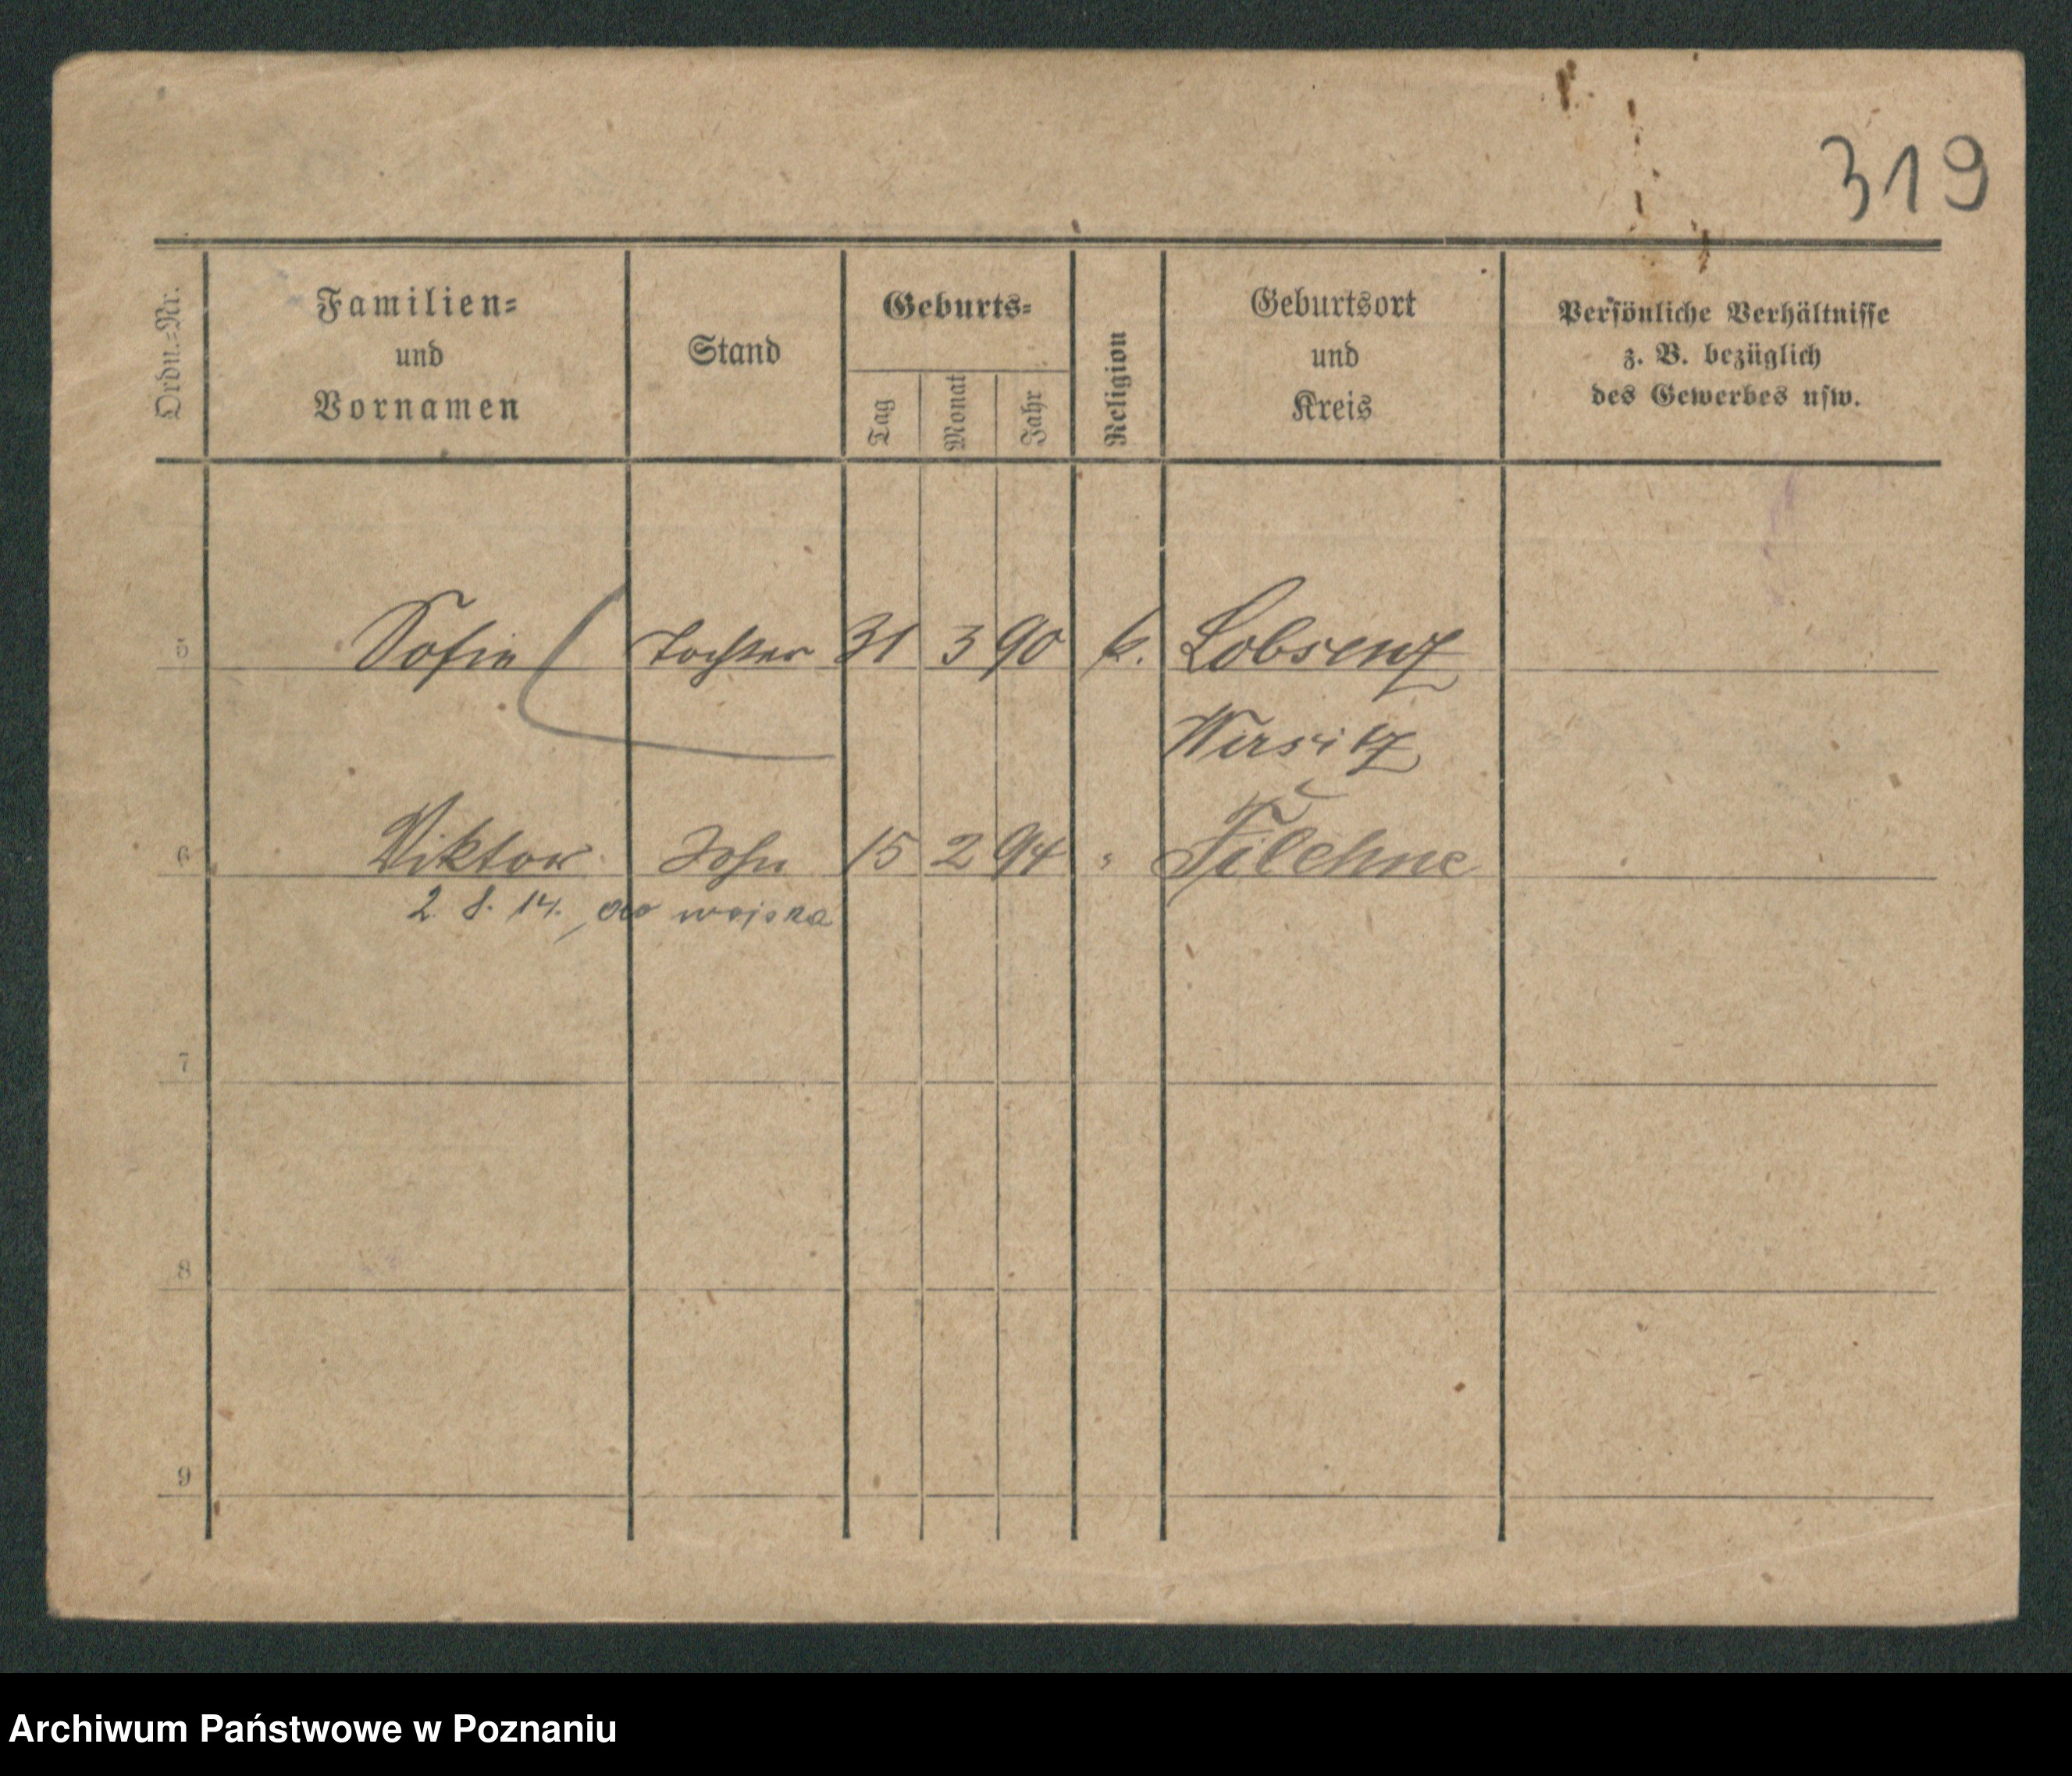 319
Ordn.=Nr.
Familien=
und
Vornamen
Stand
Geburts=
Tag
Monat
Jahr
Religion
Geburtsort
und
Kreis
Persönliche Verhältnisse
z. B. bezüglich
des Gewerbes usw.
5 Sofie Tochter 31 3 90 k. Lobsenz
Wirsitz
6 Viktor Sohn 15 2 94 " Filehne
2. 8. 14. do wojska
7
8
9
Archiwum Państwowe w Poznaniu